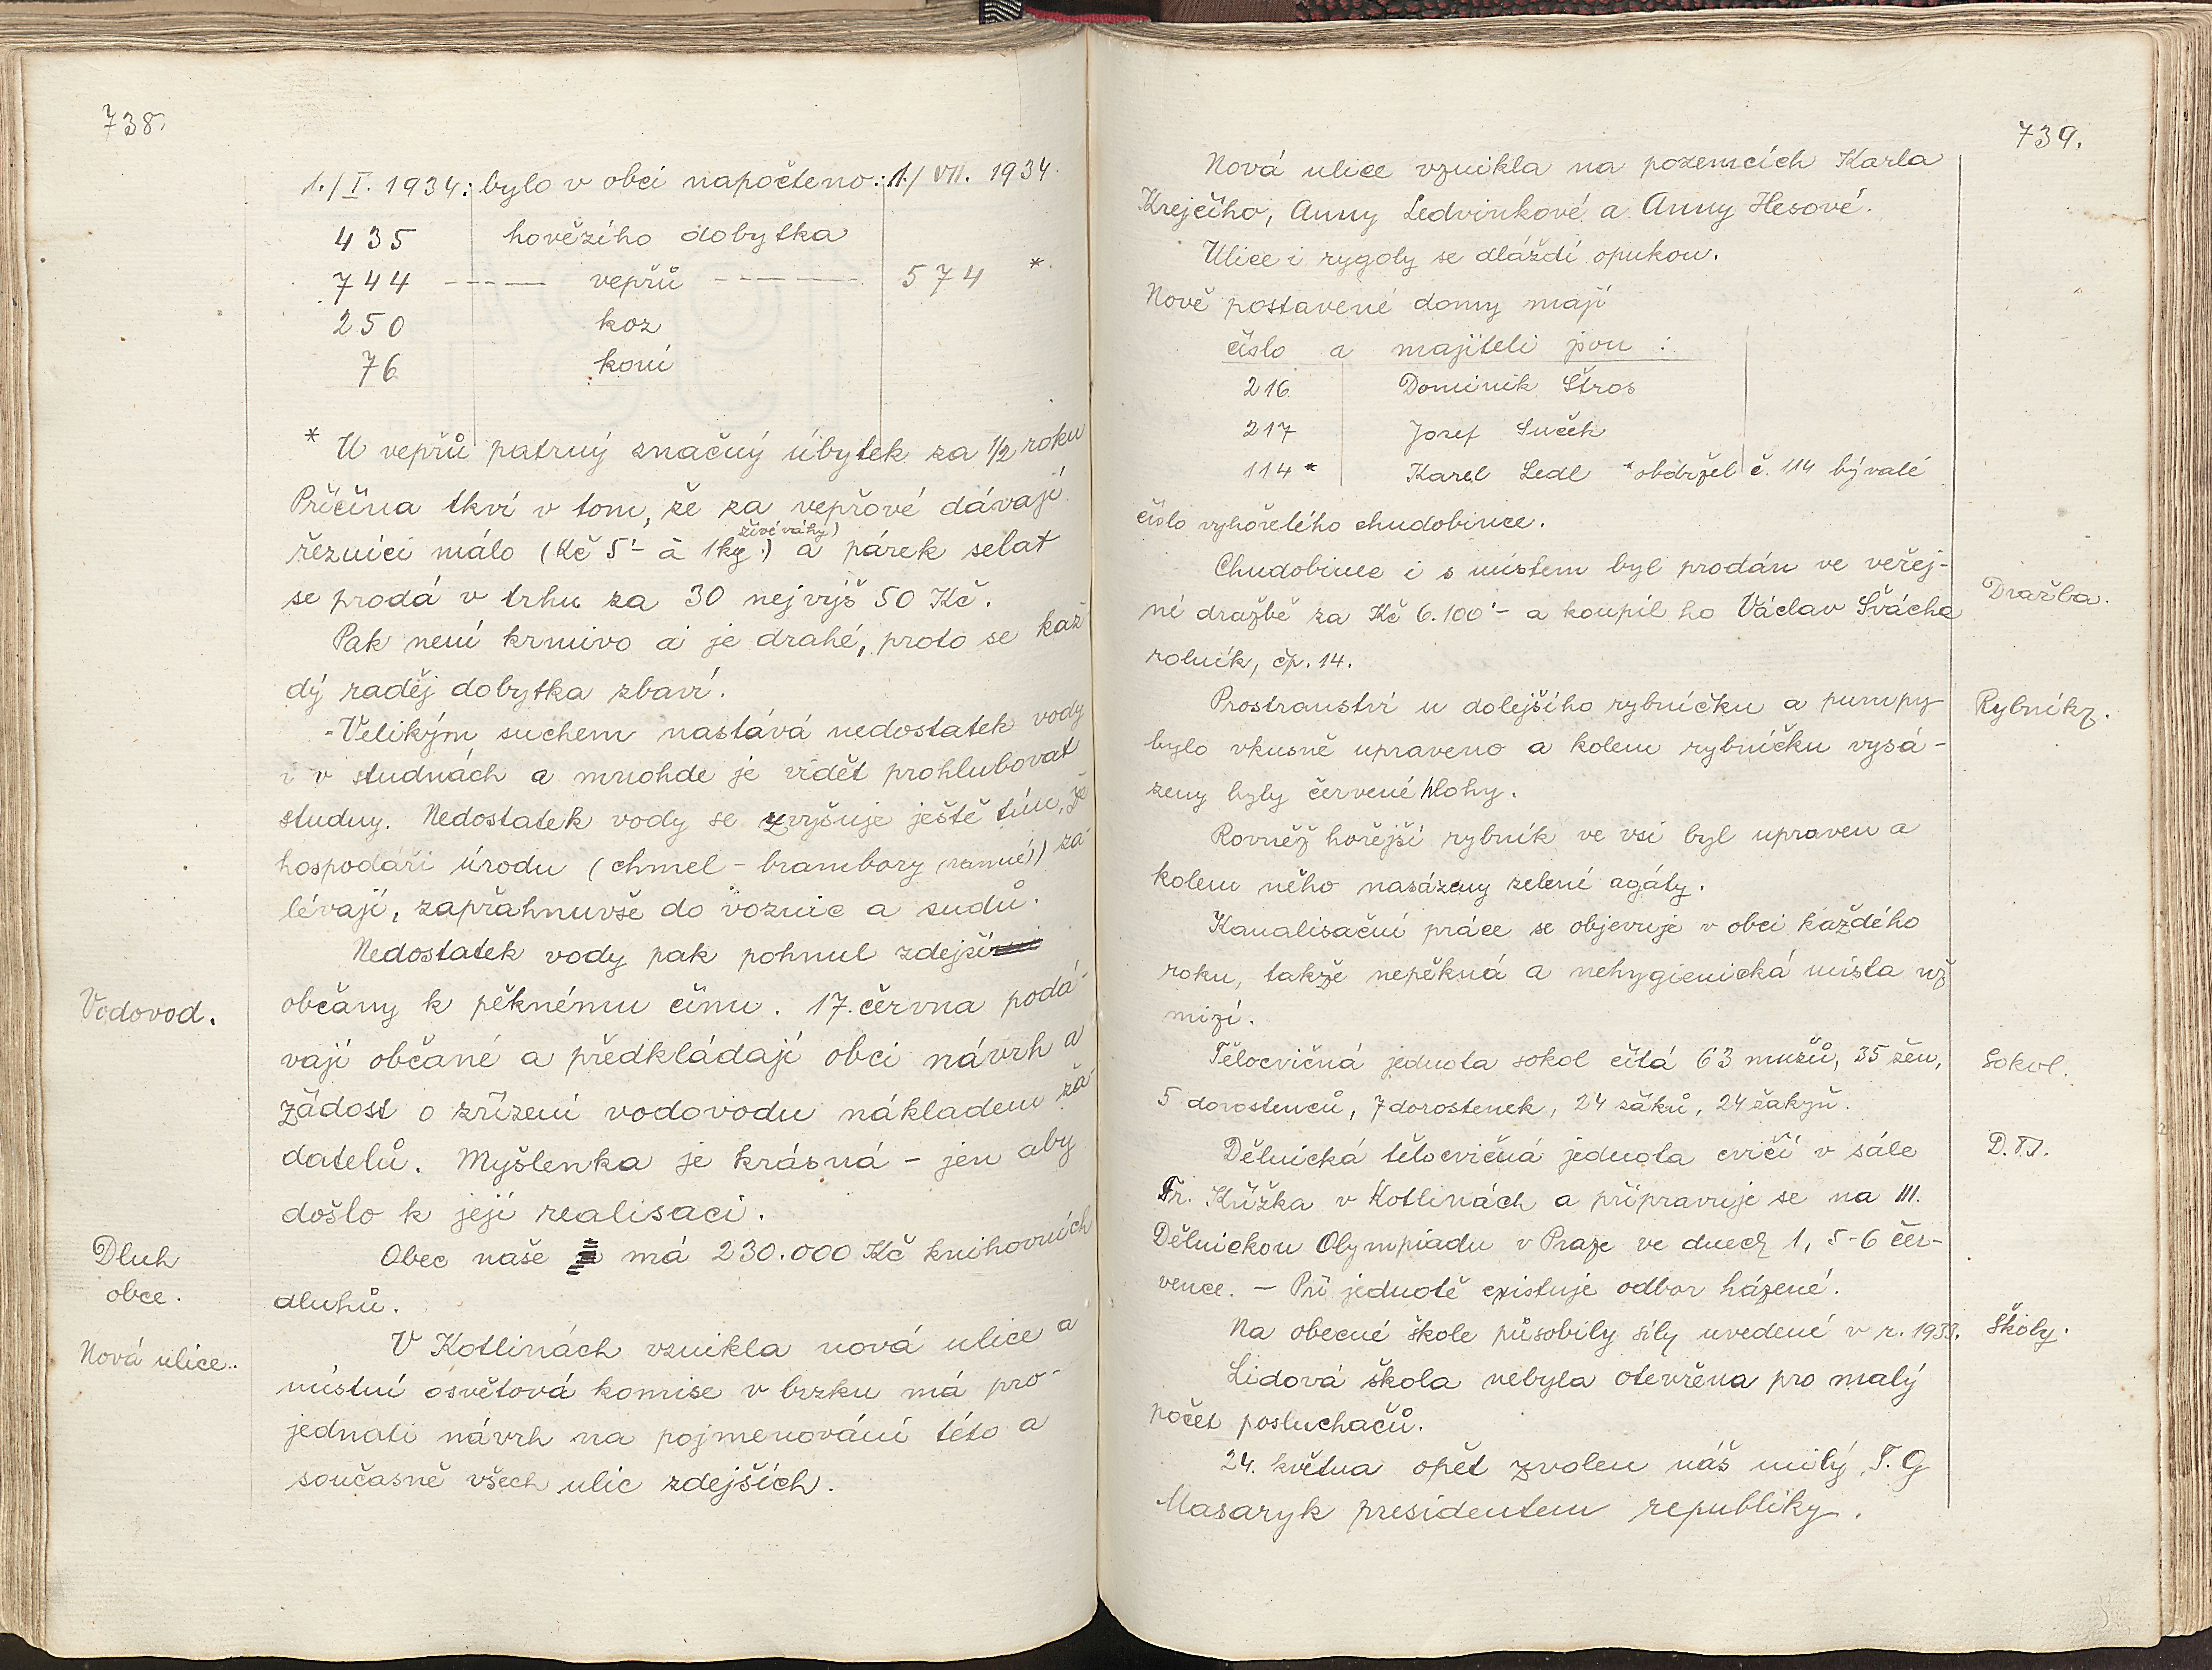 738.
1./I. 1934: bylo v obci napočteno: 1./VII. 1934.
435 hovězího dobytka
744 ----- vepřů ----- 574 *
250 koz
76 koní
* U vepřů patrný značný úbytek za 1/2 roku
Příčina tkví v tom, že za vepřové dávají
živé váhy)
řezníci málo (Kč 5'- à 1kg.) a párek selat
se prodá v trhu za 30 nejvýš 50 Kč.
Pak není krmivo a je drahé, proto se kaž-
dý raděj dobytka zbaví.
Velikým suchem nastává nedostatek vody
i v studnách a mnohde je vidět prohlubovat
studny. Nedostatek vody se zvyšuje ještě tím, že
hospodáři úrodu (chmel - brambory ranné)) za-
lévají, zapřáhnuvše do voznic a sudů.
Nedostatek vody pak pohnul zdejší
Vodovod.
občany k pěknému činu. 17. června podá-
vají občané a předkládají obci návrh a
žádost o zřízení vodovodu nákladem ža-
datelů. Myšlenka je krásná - jen aby
došlo k její realisaci.
Dluh
obce.
Obec naše má 230.000 Kč knihovních
dluhů.
Nová ulice.
V Kotlinách vznikla nová ulice a
místní osvětová komise v brzku má pro-
jednati návrh na pojmenování této a
současně všech ulic zdejších.
739.
Nová ulice vznikla na pozemcích Karla
Krejčího, Anny Ledvinkové a Anny Hesové.
Ulice i rygoly se dláždí opukou.
Nově postavené domy mají
číslo a majiteli jsou :
216. Dominik Štros
217 Josef Suček
114* Karel Ledl *obdržel č. 114 bývalé
číslo vyhořelého chudobince.
Chudobinec i s místem byl prodán ve veřej-
Dražba.
né dražbě za Kč 6.100'- a koupil ho Václav Švácha
rolník, čp. 14.
Prostranství u dolejšího rybníčku a pumpy
Rybníky.
bylo vkusně upraveno a kolem rybníčku vysá-
zeny byly červené hlohy.
Rovněž hořejší rybník ve vsi byl upraven a
kolem něho nasázeny zelení agáty.
Kanalisační práce se objevuje v obci každého
roku, takže nepěkná a nehygienická místa už
mizí.
Tělocvičná jednota sokol čítá 63 mužů, 35 žen,
Sokol.
5 dorostenců, 7 dorostenek, 24 žáků, 24 žakyň.
Dělnická tělocvičná jednota cvičí v sále
D.T.J.
Fr. Křížka v Kotlinách a připravuje se na III.
Dělnickou Olympiadu v Praze ve dnech 1, 5-6 čer-
vence. - Při jednotě existuje odbor házené.
Na obecné škole působily síly uvedené v r. 1933.
Školy.
Lidová škola nebyla otevřena pro malý
počet posluchačů.
24. května opět zvolen náš milý T. G
Masaryk presidentem republiky.